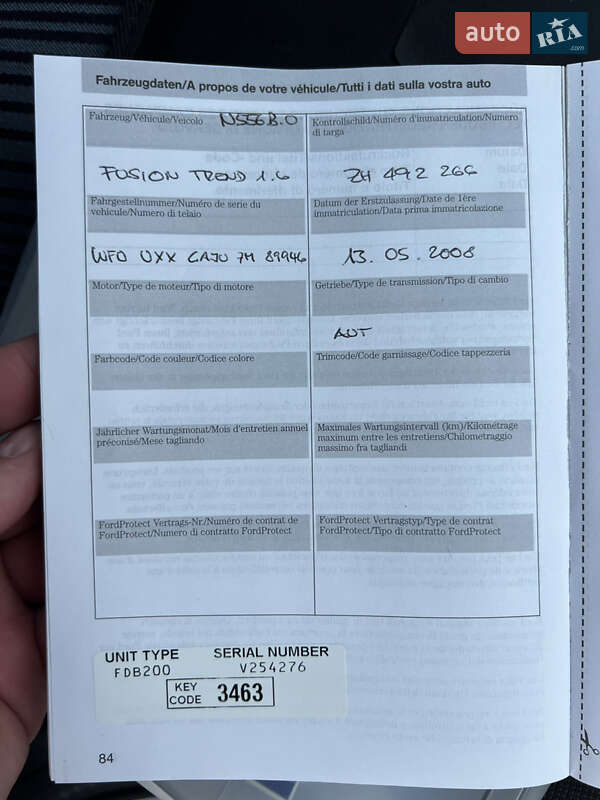 auto RIA .com
Fahrzeugdaten/A propos de votre véhicule/Tutti i dati sulla vostra auto
Fahrzeug/Véhicule/Veicolo N556B.0
FUSION TREND 1.6
Kontrollschild/Numéro d'immatriculation/Numero
di targa
ZH 492 266
Fahrgestellnummer/Numéro de serie du
vehicule/Numero di telaio
WFO UXX GAJU 7M 89946
Datum der Erstzulassung/Date de 1ère
immatriculation/Data prima immatricolazione
13. 05. 2008
Motor/Type de moteur/Tipo di motore
Getriebe/Type de transmission/Tipo di cambio
AUT
Farbcode/Code couleur/Codice colore
Trimcode/Code garnissage/Codice tappezzeria
Jährlicher Wartungsmonat/Mois d'entretien annuel
préconisé/Mese tagliando
Maximales Wartungsintervall (km)/Kilométrage
maximum entre les entretiens/Chilometraggio
massimo fra tagliandi
FordProtect Vertrags-Nr./Numéro de contrat de
FordProtect/Numero di contratto FordProtect
FordProtect Vertragstyp/Type de contrat
FordProtect/Tipo di contratto FordProtect
UNIT TYPE SERIAL NUMBER
FDB200 V254276
KEY
CODE 3463
84